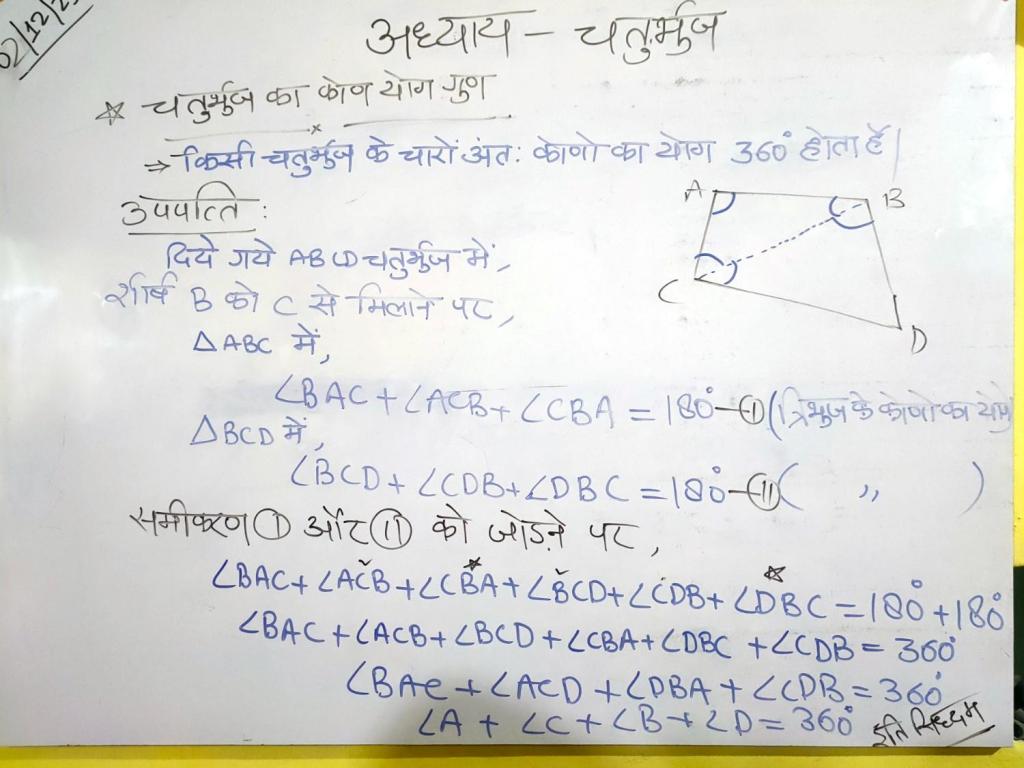 02/12/2
अध्याय - चतुर्भुज
☆ चतुर्भुज का कोण योग गुण
⇒ किसी चतुर्भुज के चारों अंतः कोणो का योग 360° होता हैं|
उपपत्ति :
A
B
C
D
दिये गये ABCD चतुर्भुज में,
शीर्ष B को C से मिलाने पर,
△ABC में,
∠BAC + ∠ACB + ∠CBA = 180° - Ⓘ (त्रिभुज के कोणो का योग)
△BCD में,
∠BCD + ∠CDB + ∠DBC = 180° - Ⓘ︎Ⓘ ( ,, )
समीकरण Ⓘ और Ⓘ︎Ⓘ को जोड़ने पर,
∠BAC + ∠ACB + ∠CBA + ∠BCD + ∠CDB + ∠DBC = 180° + 180°
∠BAC + ∠ACB + ∠BCD + ∠CBA + ∠DBC + ∠CDB = 360°
∠BAC + ∠ACD + ∠DBA + ∠CDB = 360°
∠A + ∠C + ∠B + ∠D = 360°
इति सिध्दम